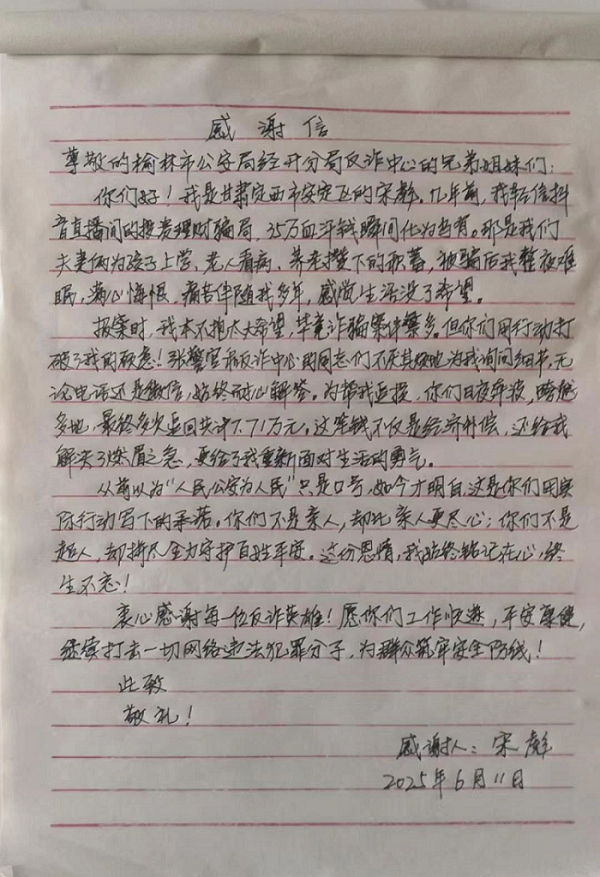 感谢信
尊敬的榆林市公安局经开分局反诈中心的兄弟姐妹们：
你们好！我是甘肃定西市安定区的宋彪。几年前，我轻信抖
音直播间的投资理财骗局，35万血汗钱瞬间化为乌有。那是我们
夫妻俩为孩子上学、老人看病、养老攒下的积蓄，被骗后我整夜难
眠，满心悔恨，痛苦伴随我多年，感觉生活没了希望。
报案时，我本不抱太大希望，毕竟诈骗案件繁多。但你们用行动打
破了我的顾虑！张警官和反诈中心的同志们不厌其烦地为我询问细节，无
论电话还是微信，始终耐心解答。为帮我追损，你们日夜奔波，跨越
多地，最终多次追回共计7.71万元。这笔钱不仅是经济补偿，还给我
解决了燃眉之急，更给了我重新面对生活的勇气。
从前以为“人民公安为人民”只是口号，如今才明白，这是你们用实
际行动写下的承诺。你们不是亲人，却比亲人更尽心；你们不是
超人，却拼尽全力守护百姓平安。这份恩情，我始终铭记在心，终
生不忘！
衷心感谢每一位反诈英雄！愿你们工作顺遂，平安康健，
继续打击一切网络违法犯罪分子，为群众筑牢安全防线！
此致
敬礼！
感谢人：宋彪
2025年6月11日